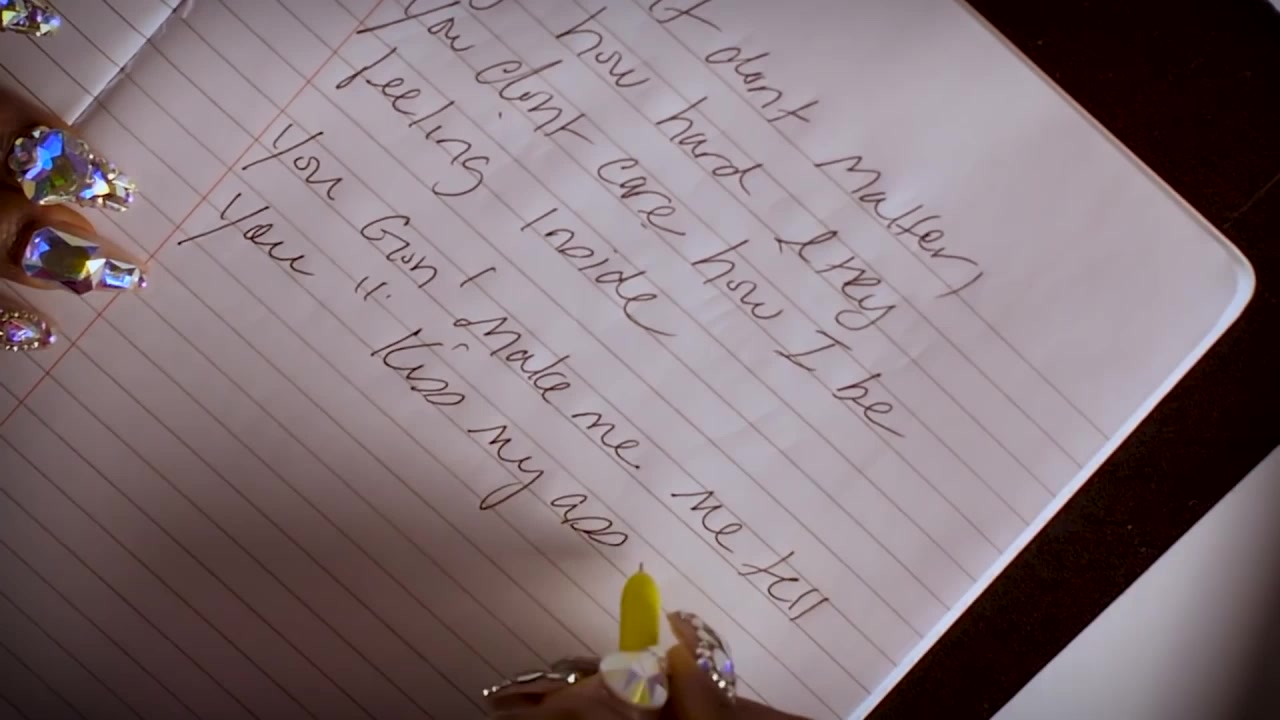 It dont matter,
how hard I rey
You dont care how I be
feeling Inside
You Gon' make me me tell
You " Kiss my ass